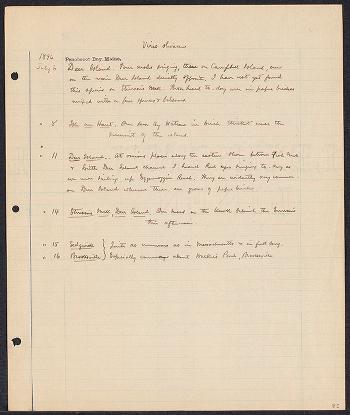 Vireo olivaceus
1896
Penobscot Bay, Maine.
July 6 Deer Island. Four males singing, three on Campbell Island, one
on the main Deer Island directly opposite. I have not yet found
this species on Stinson's Neck. Birds heard to-day were in paper birches
mixed with a few spruces & balsams.
" 8 Isle au Haut. One seen by Watrous in birch thicket near the
summit of the island
" 11 Deer Island. At various places along the eastern shore between
& Little Deer Island channel I heard Red-eyes singing to-day as
we were sailing up Eggemoggin Reach. They are evidently very common
on Deer Island wherever there are groves of paper birches.
" 14 Stinson's Neck, Deer Island. One heard on the knoll behind the
this afternoon.
" 15 Sedgwick } Quite as numerous as in Massachusetts & in full song.
" 16 Brooksville } Especially about Walker's Pond, Brooksville